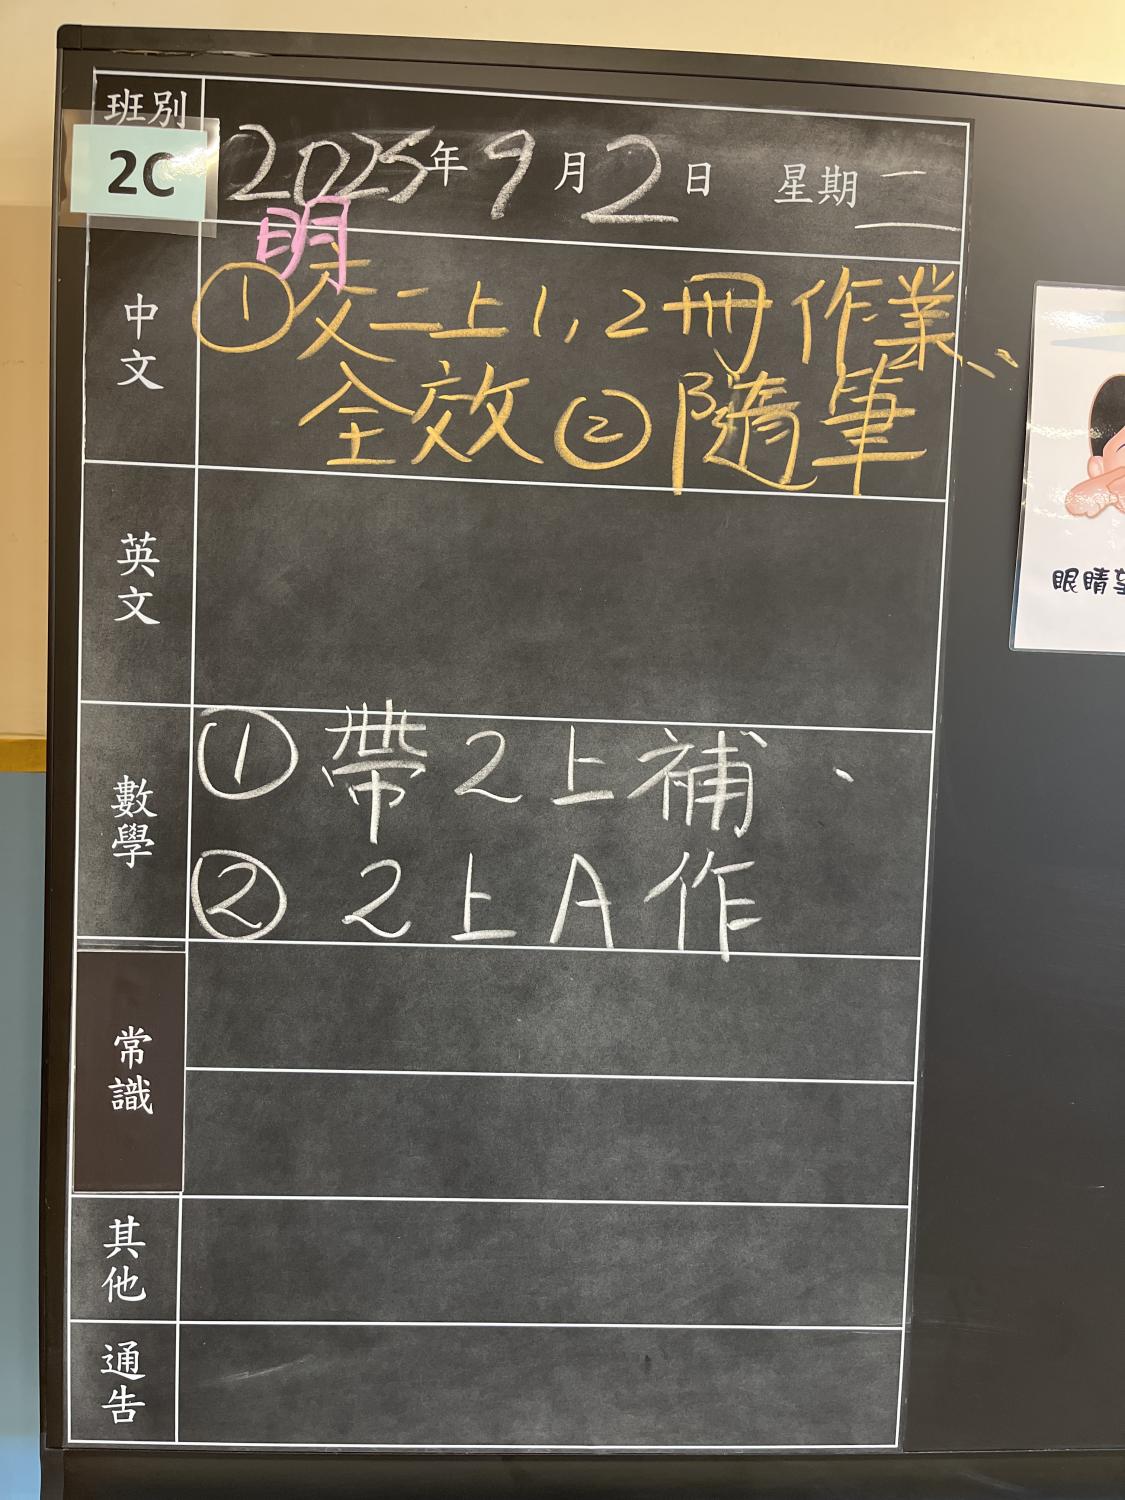 班別
2C
2025年9月2日 星期二
明
中文
①交二上1,2冊作業、
全效②隨筆
英文
數學
①帶2上補、
②2上A作
常識
其他
通告
眼睛